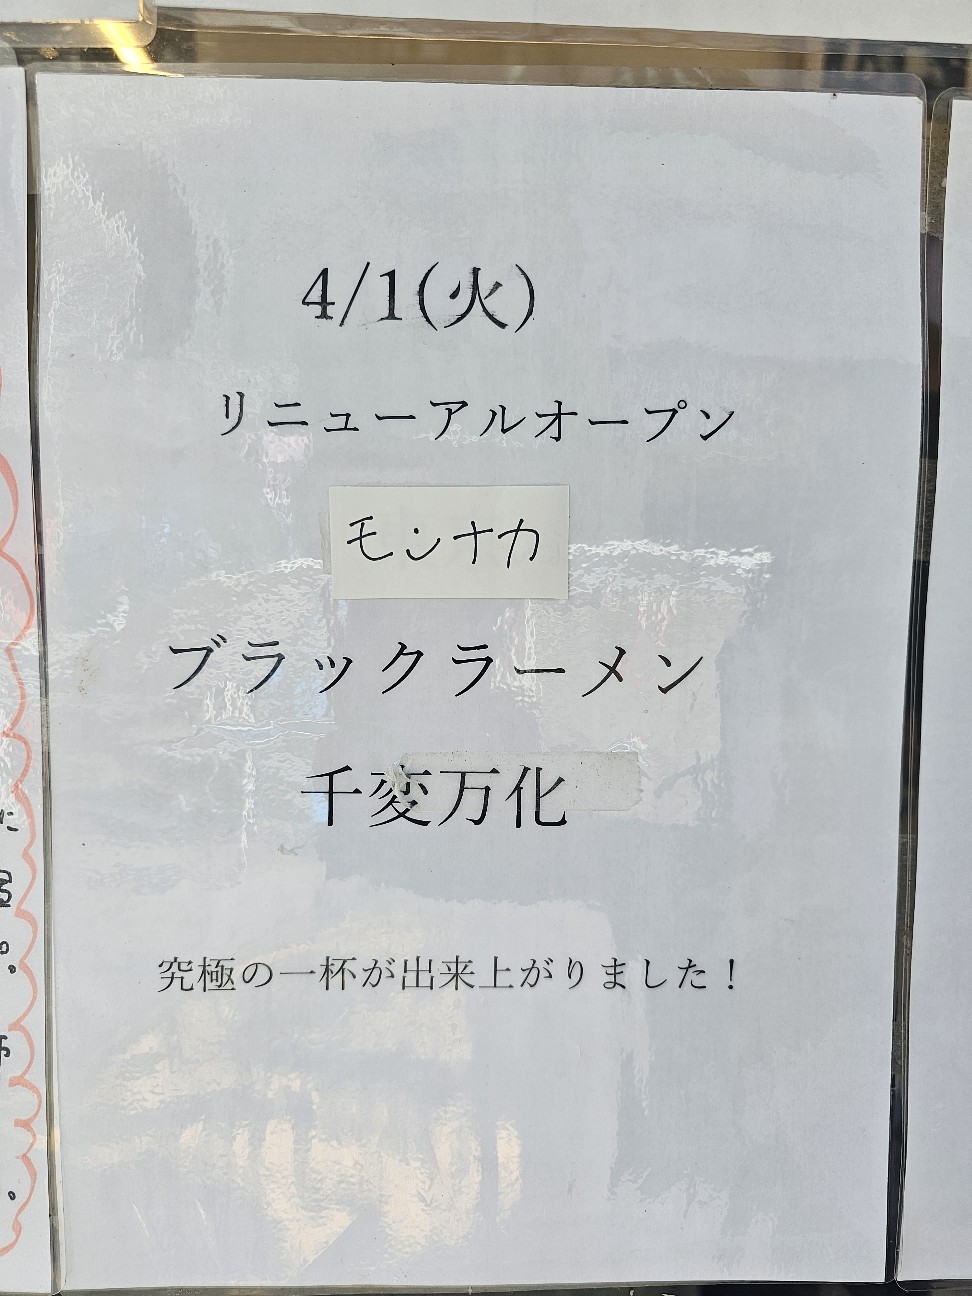 4/1(火)
リニューアルオープン
モンナカ
ブラックラーメン
千変万化
究極の一杯が出来上がりました！